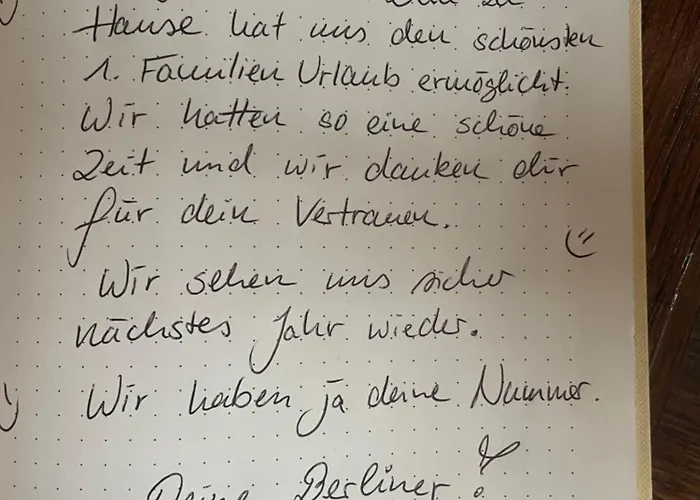 Hause hat uns den schönsten
1. Familien Urlaub ermöglicht.
Wir hatten so eine schöne
Zeit und wir danken dir
für dein Vertrauen.
Wir sehen uns sicher
nächstes Jahr wieder.
Wir haben ja deine Nummer.
Deine Berliner